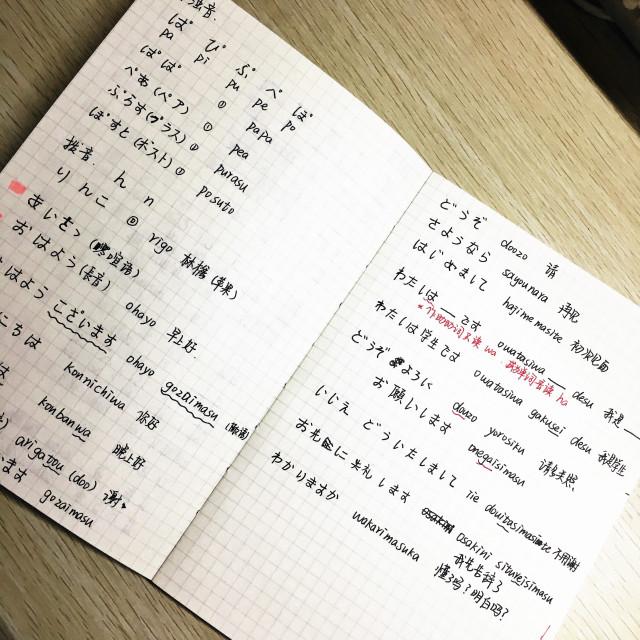 浊音.
ぱ ぴ ぷ ぺ ぽ
pa pi pu pe po
ぱぱ ① papa
ぺあ(ペア) ① pea
ぷらす(プラス) purasu
ぽすと(ポスト) ① posuto
拨音 ん n
りんご ⓪ rigo 林檎(苹果)
あいさつ(
おはよう(长音) ohayo 早上好.
はよう ございます ohayo gozaimasu
ちは konnichiwa 你好
は konbanwa 晚上好
arigatou (doo) 谢
ます gozaimasu
どうぞ doozo 请
さようなら sayounara 再见
はじめまして hajimemasite 初次见面
わたしは___です owatasiwa___desu 我是___
わたしは学生です owatasiwa gakusei desu 我是学生
どうぞ よろしく doozo yorosiku 请多关照
お願いします onegaisimasu
いいえ どういたしまして iie douitasimasite 不用谢
お先に 失礼 します osakini siturei simasu
我先告辞了
わかりますか wakarimasuka 懂吗?明白吗?